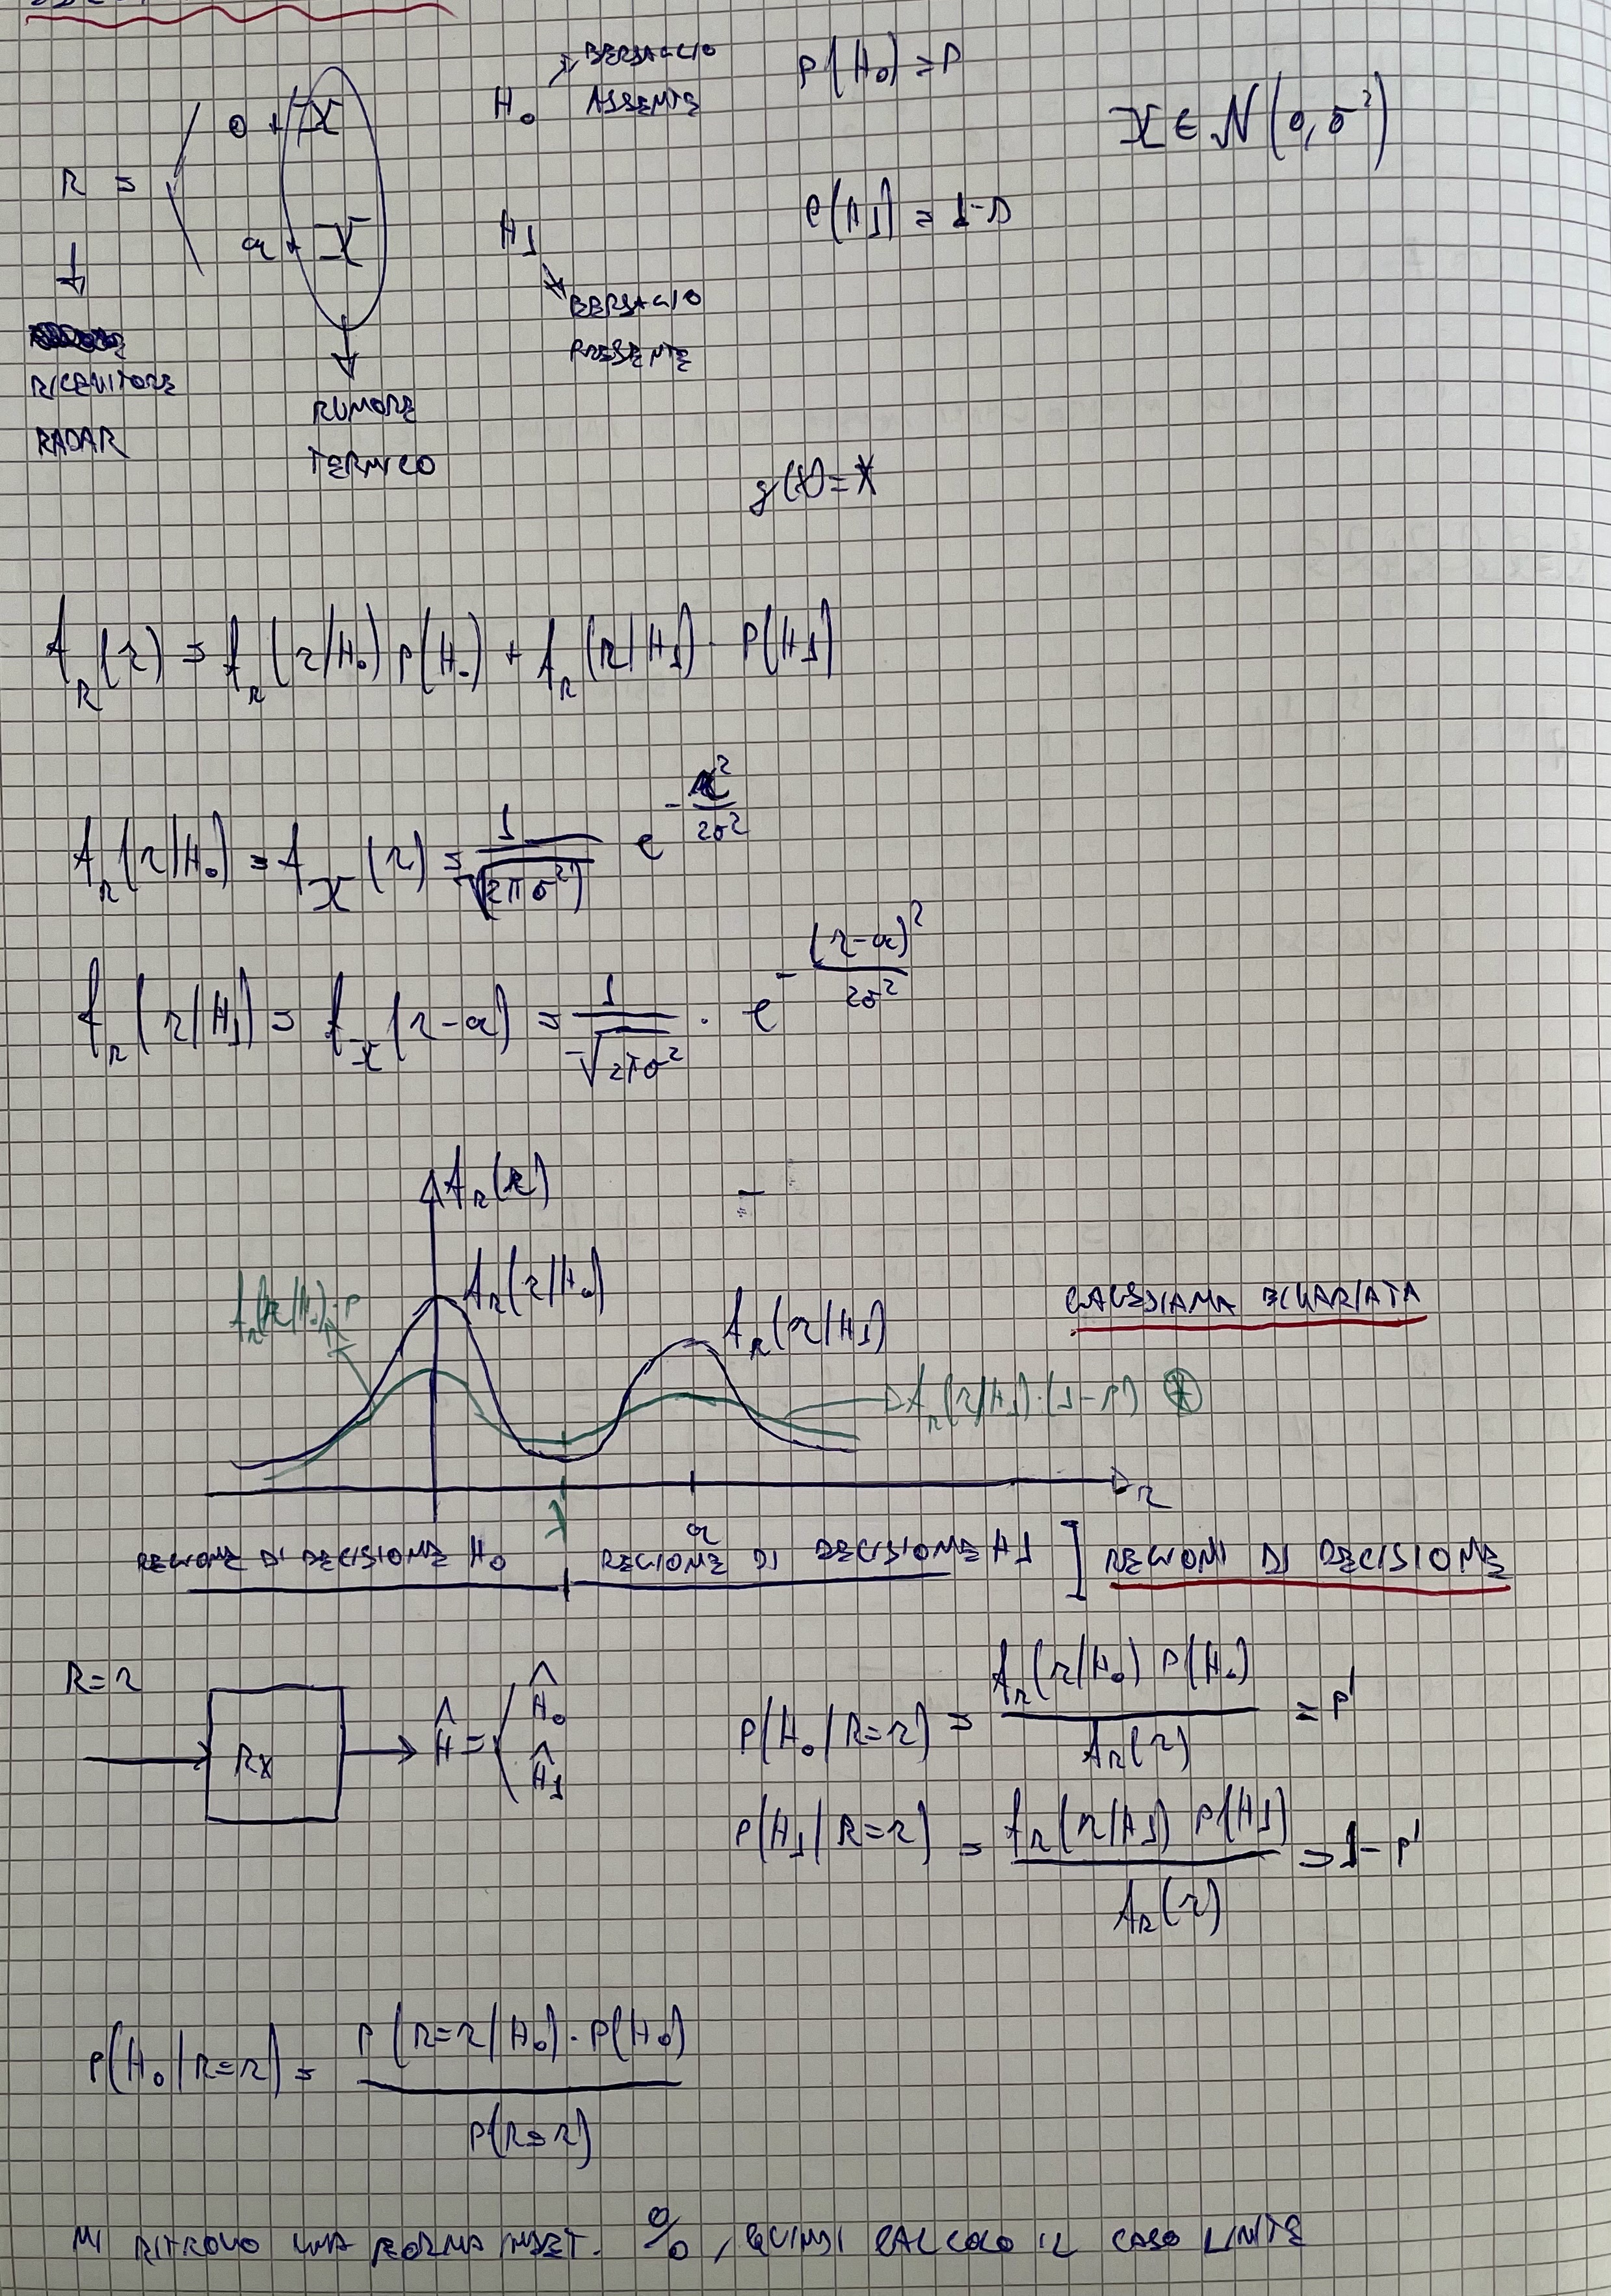 R = 0 + X H₀ → BERSAGLIO ASSENTE P(H₀) = P
X ∈ N(0, σ²)
a + X H₁ → BERSAGIO PRESENTE P(H1) = 1-P
RICEVITORE
RADAR
RUMORE
TERMICO
g(X) = X
f_R(r) = f_R(r/H₀) P(H₀) + f_R(r/H1) · P(H1)
f_R(r/H₀) = f_X(r) = 1/√(2πσ²) e^(-r²/2σ²)
f_R(r/H1) = f_X(r-a) = 1/√(2πσ²) · e^(-(r-a)²/2σ²)
f_R(r)
f_R(r/H₀)·P
f_R(r/H₀)
f_R(r/H1)
GAUSSIANA BIVARIATA
f_R(r/H1)·(1-P) ⊛
r
λ
a
REGIONE DI DECISIONE H₀ REGIONE DI DECISIONE H1 ] REGIONI DI DECISIONE
R=r
Rx
Ĥ = Ĥ₀
Ĥ₁
P(H₀/R=r) = f_R(r/H₀) P(H₀) / f_R(r) = P'
P(H1/R=r) = f_R(r/H1) P(H1) / f_R(r) = 1-P'
P(H₀/R=r) = P(R=r/H₀)·P(H₀) / P(R=r)
MI RITROVO UNA FORMA INDET. 0/0, QUINDI CALCOLO IL CASO LIMITE